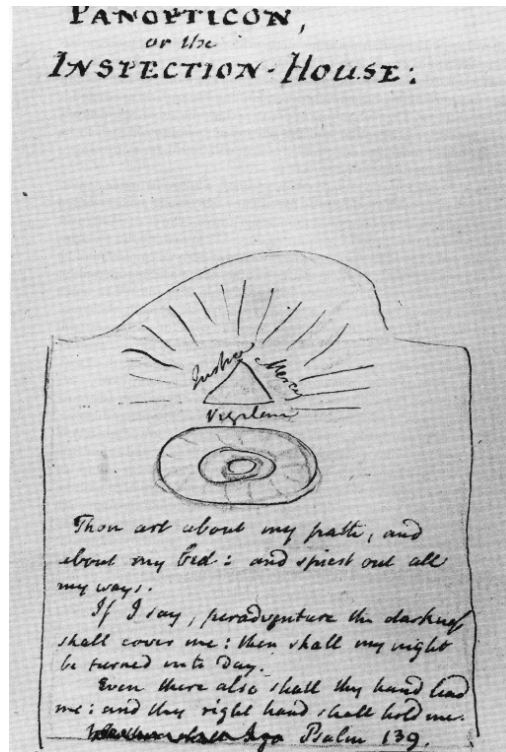 PANOPTICON,
or the
INSPECTION-HOUSE:
Justice
Mercy
Vigilance
Thou art about my path, and
about my bed: and spiest out all
my ways.
If I say, peradventure the darkness
shall cover me: then shall my night
be turned into day.
Even there also shall thy hand lead
me: and thy right hand shall hold me.
Psalm 139.